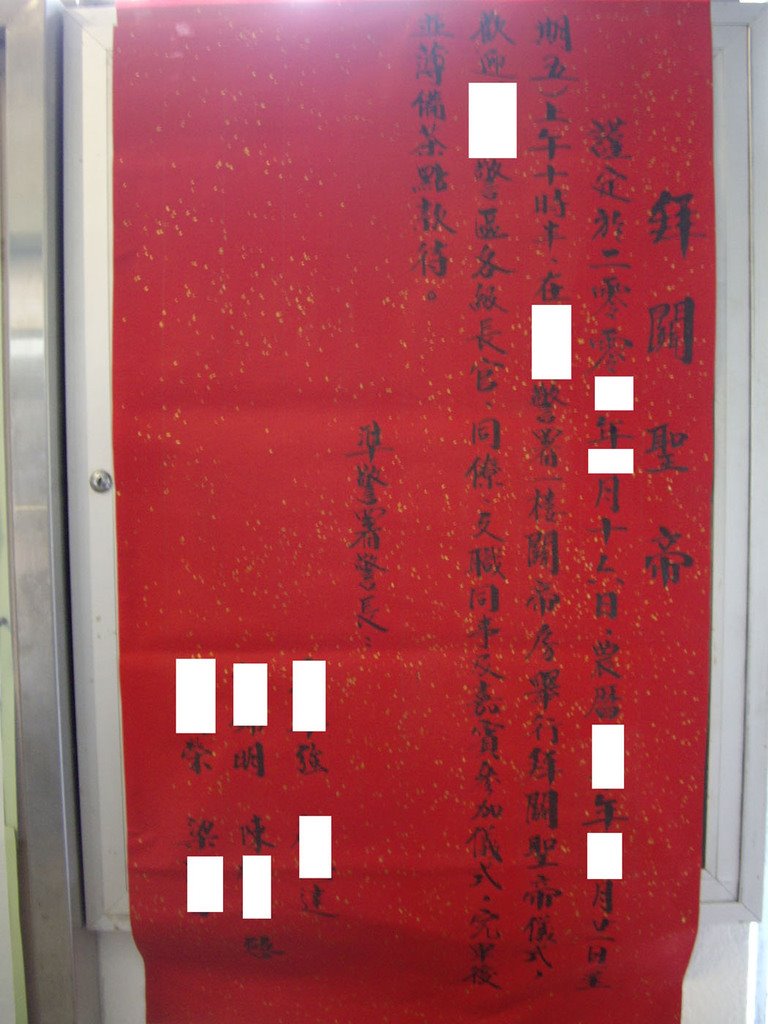 拜關聖帝
謹定於二零零年月十六日，農曆年月廿一日（星
期五）上午十時半，在警署一樓關帝房舉行拜關聖帝儀式，
歡迎警區各級長官、同僚、文職同事及嘉賓參加儀式，完畢後
並薄備茶點款待。
準警署警長：
強 達
明 陳
榮 梁